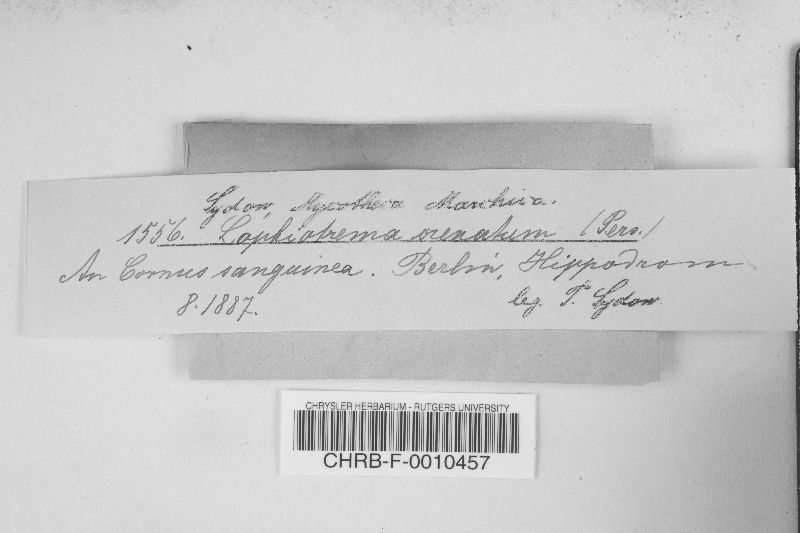 Sydow, Mycotheca Marchica.
1556. Lophiotrema crenatum (Pers.)
An Cornus sanguinea. Berlin, Hippodrom
8.1887.
leg. P. Sydow.
CHRYSLER HERBARIUM - RUTGERS UNIVERSITY
CHRB-F-0010457